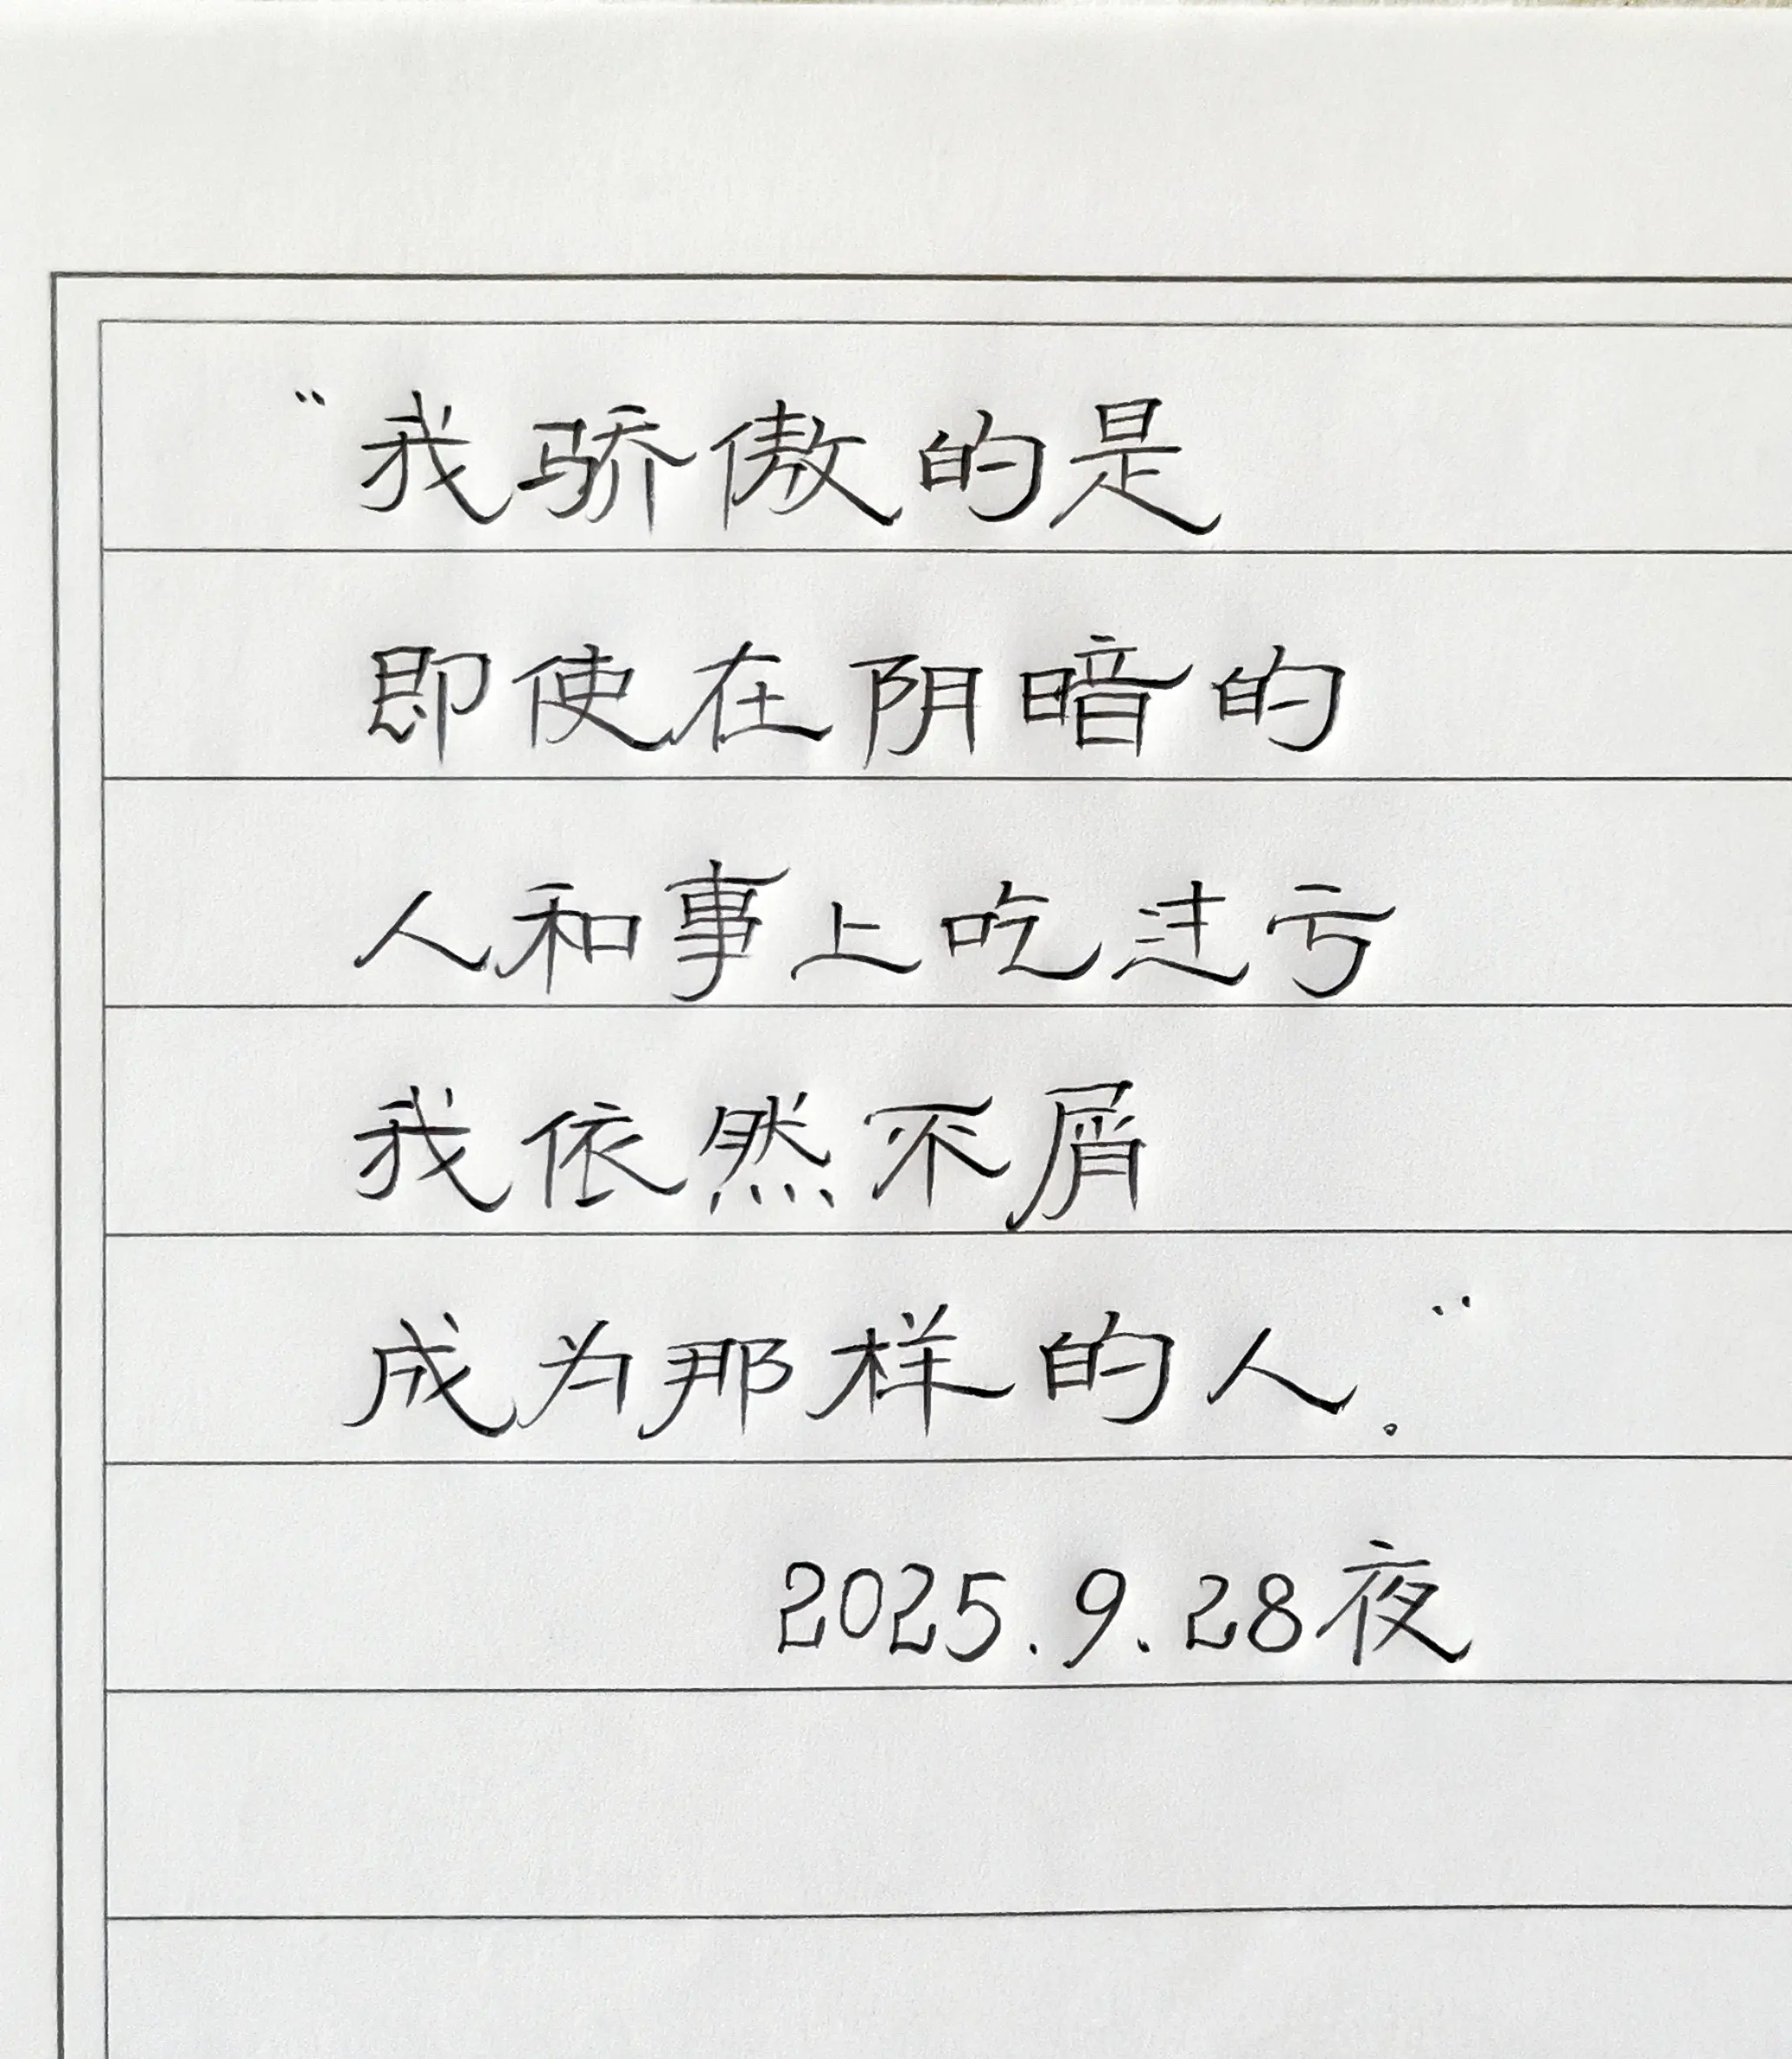 “我骄傲的是
即使在阴暗的
人和事上吃过亏
我依然不屑
成为那样的人。”
2025.9.28夜